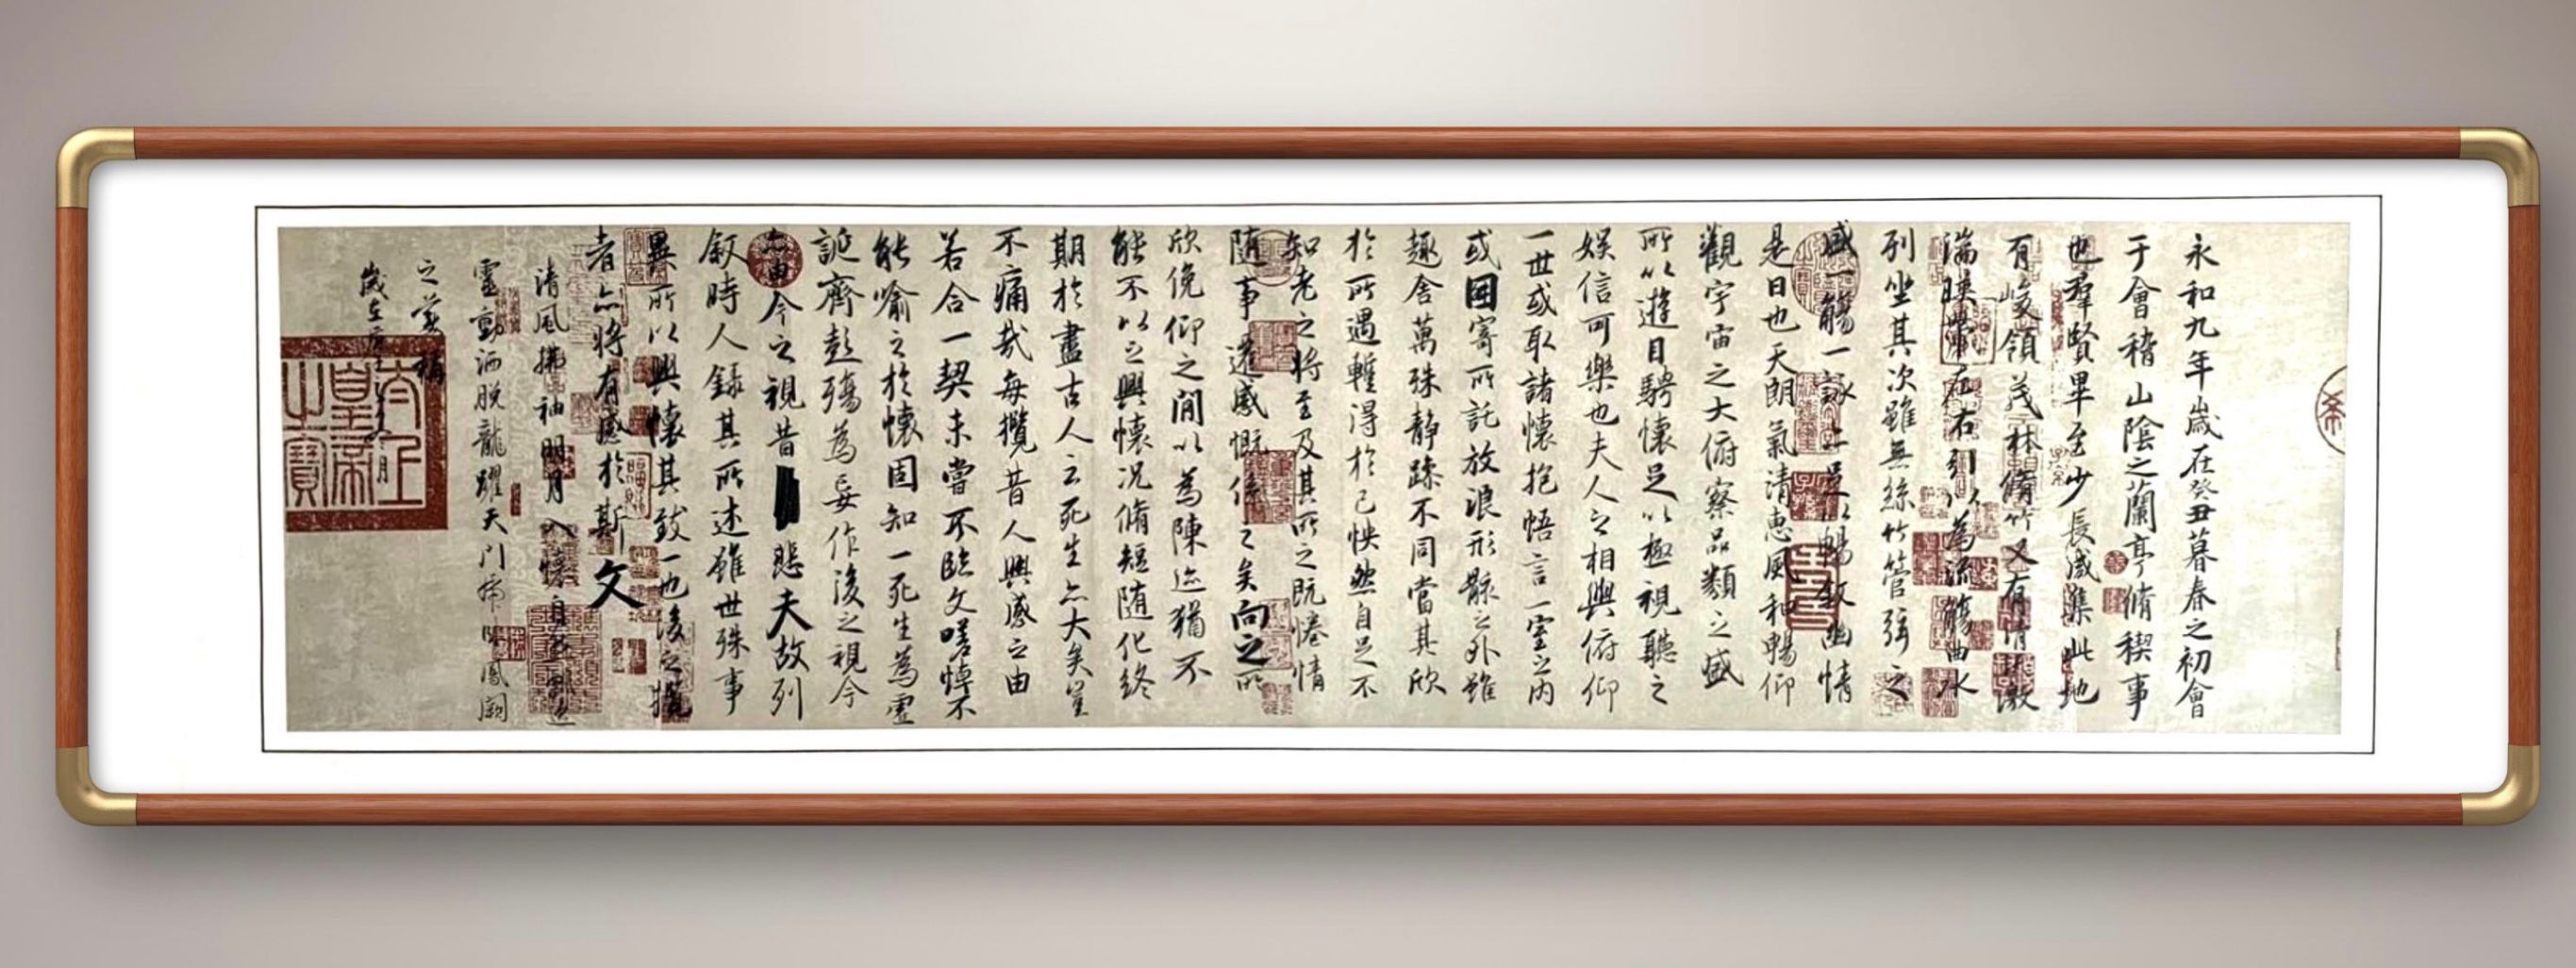 永和九年歲在癸丑暮春之初會
于會稽山陰之蘭亭脩稧事
也羣賢畢至少長咸集此地
有峻領茂林脩竹又有清激
湍暎帶左右引以為流觴曲水
列坐其次雖無絲竹管弦之
盛一觴一詠亦足以暢敘幽情
是日也天朗氣清惠風和暢仰
觀宇宙之大俯察品類之盛
所以遊目騁懷足以極視聽之
娛信可樂也夫人之相與俯仰
一世或取諸懷抱悟言一室之内
或因寄所託放浪形骸之外雖
趣舍萬殊靜躁不同當其欣
於所遇蹔得於己怏然自足不
知老之將至及其所之既惓情
隨事遷感慨係之矣向之所
欣俛仰之閒以為陳迹猶不
能不以之興懷況脩短隨化終
期於盡古人云死生亦大矣豈
不痛哉每攬昔人興感之由
若合一契未嘗不臨文嗟悼不
能喻之於懷固知一死生為虛
誕齊彭殤為妄作後之視今
亦由今之視昔悲夫故列
敘時人錄其所述雖世殊事
異所以興懷其致一也後之攬
者亦將有感於斯文
清風拂袖明月入懷自
靈動洒脫龍躍天門虎臥鳳闕
之美稱
歲在月